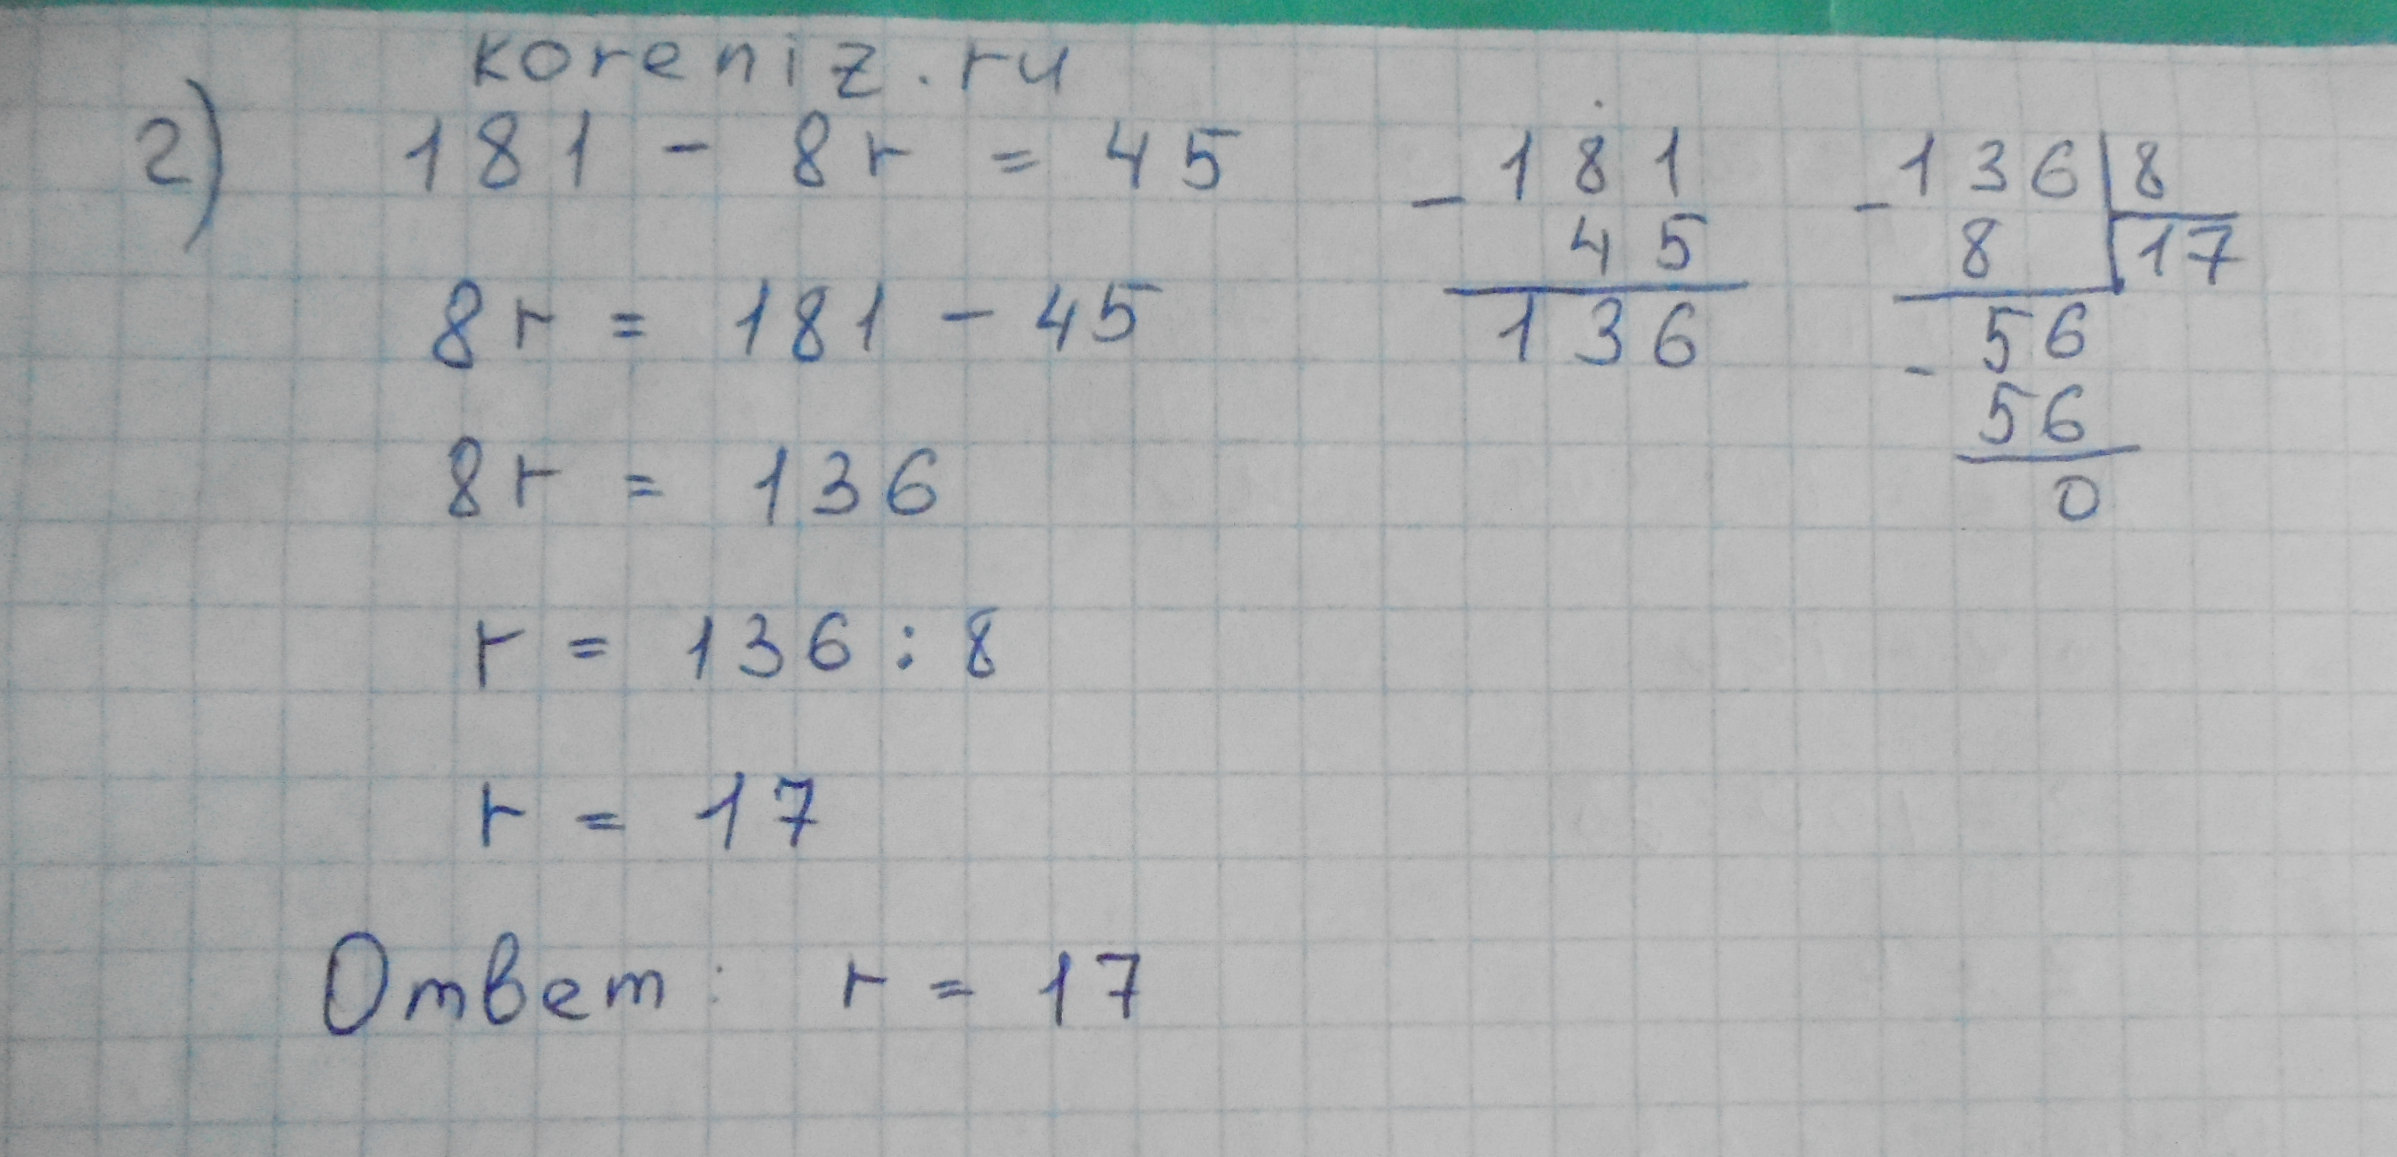 koreniz.ru
2) 181 - 8r = 45
8r = 181 - 45
8r = 136
r = 136 : 8
r = 17
Ответ: r = 17
- 181
45
136
- 136 | 8
8 | 17
- 56
56
0